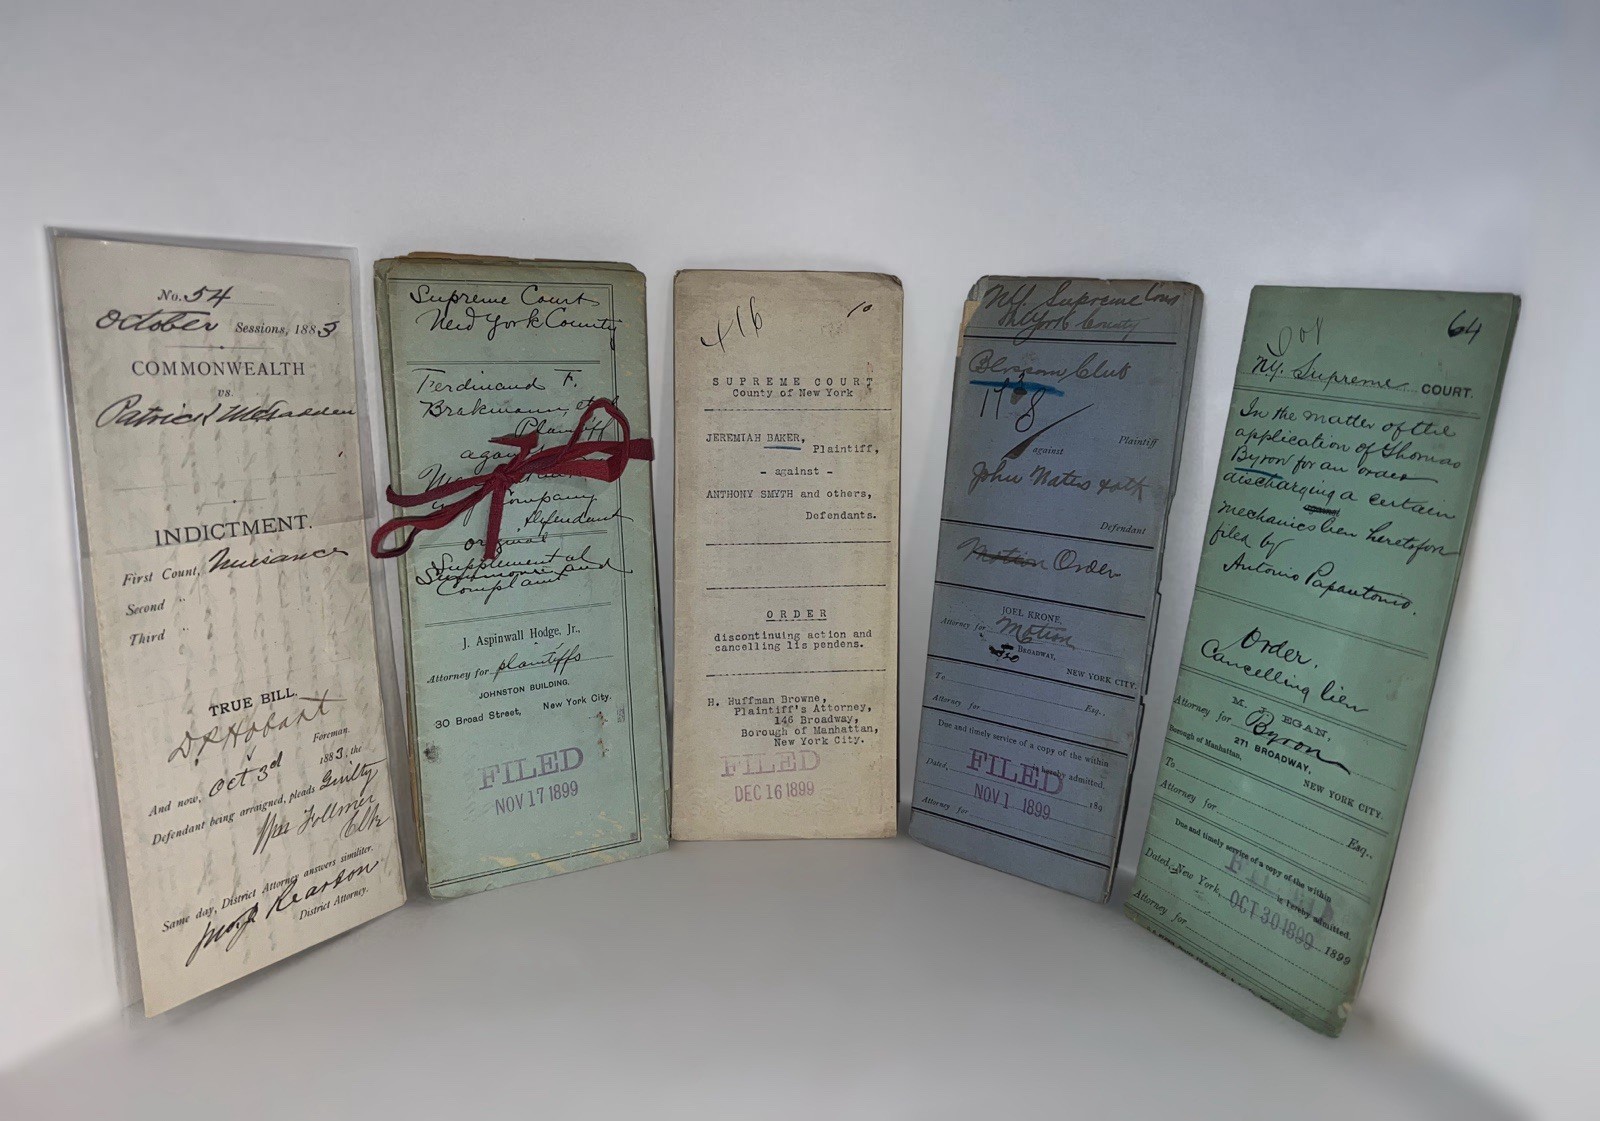 No. 54
October Sessions, 1883
COMMONWEALTH
vs.
Patrick McFadden
INDICTMENT.
First Count, Nuisance
Second "
Third "
TRUE BILL.
D R Hobart
Foreman.
And now, Oct 3d 1883, the
Defendant being arraigned, pleads Guilty
Wm Follmer
Clk
Same day, District Attorney answers similiter.
Reardon
District Attorney.
Supreme Court
New York County
Ferdinand F.
Brakmann, et al
Plaintiff
against
Company.
Defendant
Original
Supplemental
Summons and
Complaint
J. Aspinwall Hodge, Jr.,
Attorney for plaintiffs
JOHNSTON BUILDING,
30 Broad Street, New York City.
FILED
NOV 17 1899
416
10
SUPREME COURT
County of New York
JEREMIAH BAKER,
Plaintiff,
- against -
ANTHONY SMYTH and others,
Defendants.
ORDER
discontinuing action and
cancelling lis pendens.
H. Huffman Browne,
Plaintiff's Attorney,
146 Broadway,
Borough of Manhattan,
New York City.
FILED
DEC 16 1899
N.Y. Supreme Court
N.Y. County
Blossom Club
Plaintiff
against
John Waters
Defendant
Motion Order
JOEL KRONE,
Attorney for Motion
BROADWAY,
NEW YORK CITY.
To
Attorney for Esq.,
Due and timely service of a copy of the within
is hereby admitted.
Dated, 189
FILED
NOV 1 1899
Attorney for
64
N.Y. Supreme COURT.
In the matter of the
application of Thomas
Byron for an order
discharging a certain
against
mechanics lien heretofore
filed by
Antonio Papantonio.
Order.
Cancelling lien
M. J. EGAN,
Attorney for Byron
271 BROADWAY,
Borough of Manhattan,
NEW YORK CITY.
To
Attorney for Esq.,
Due and timely service of a copy of the within
is hereby admitted.
Dated, New York, 1899
FILED
OCT 30 1899
Attorney for